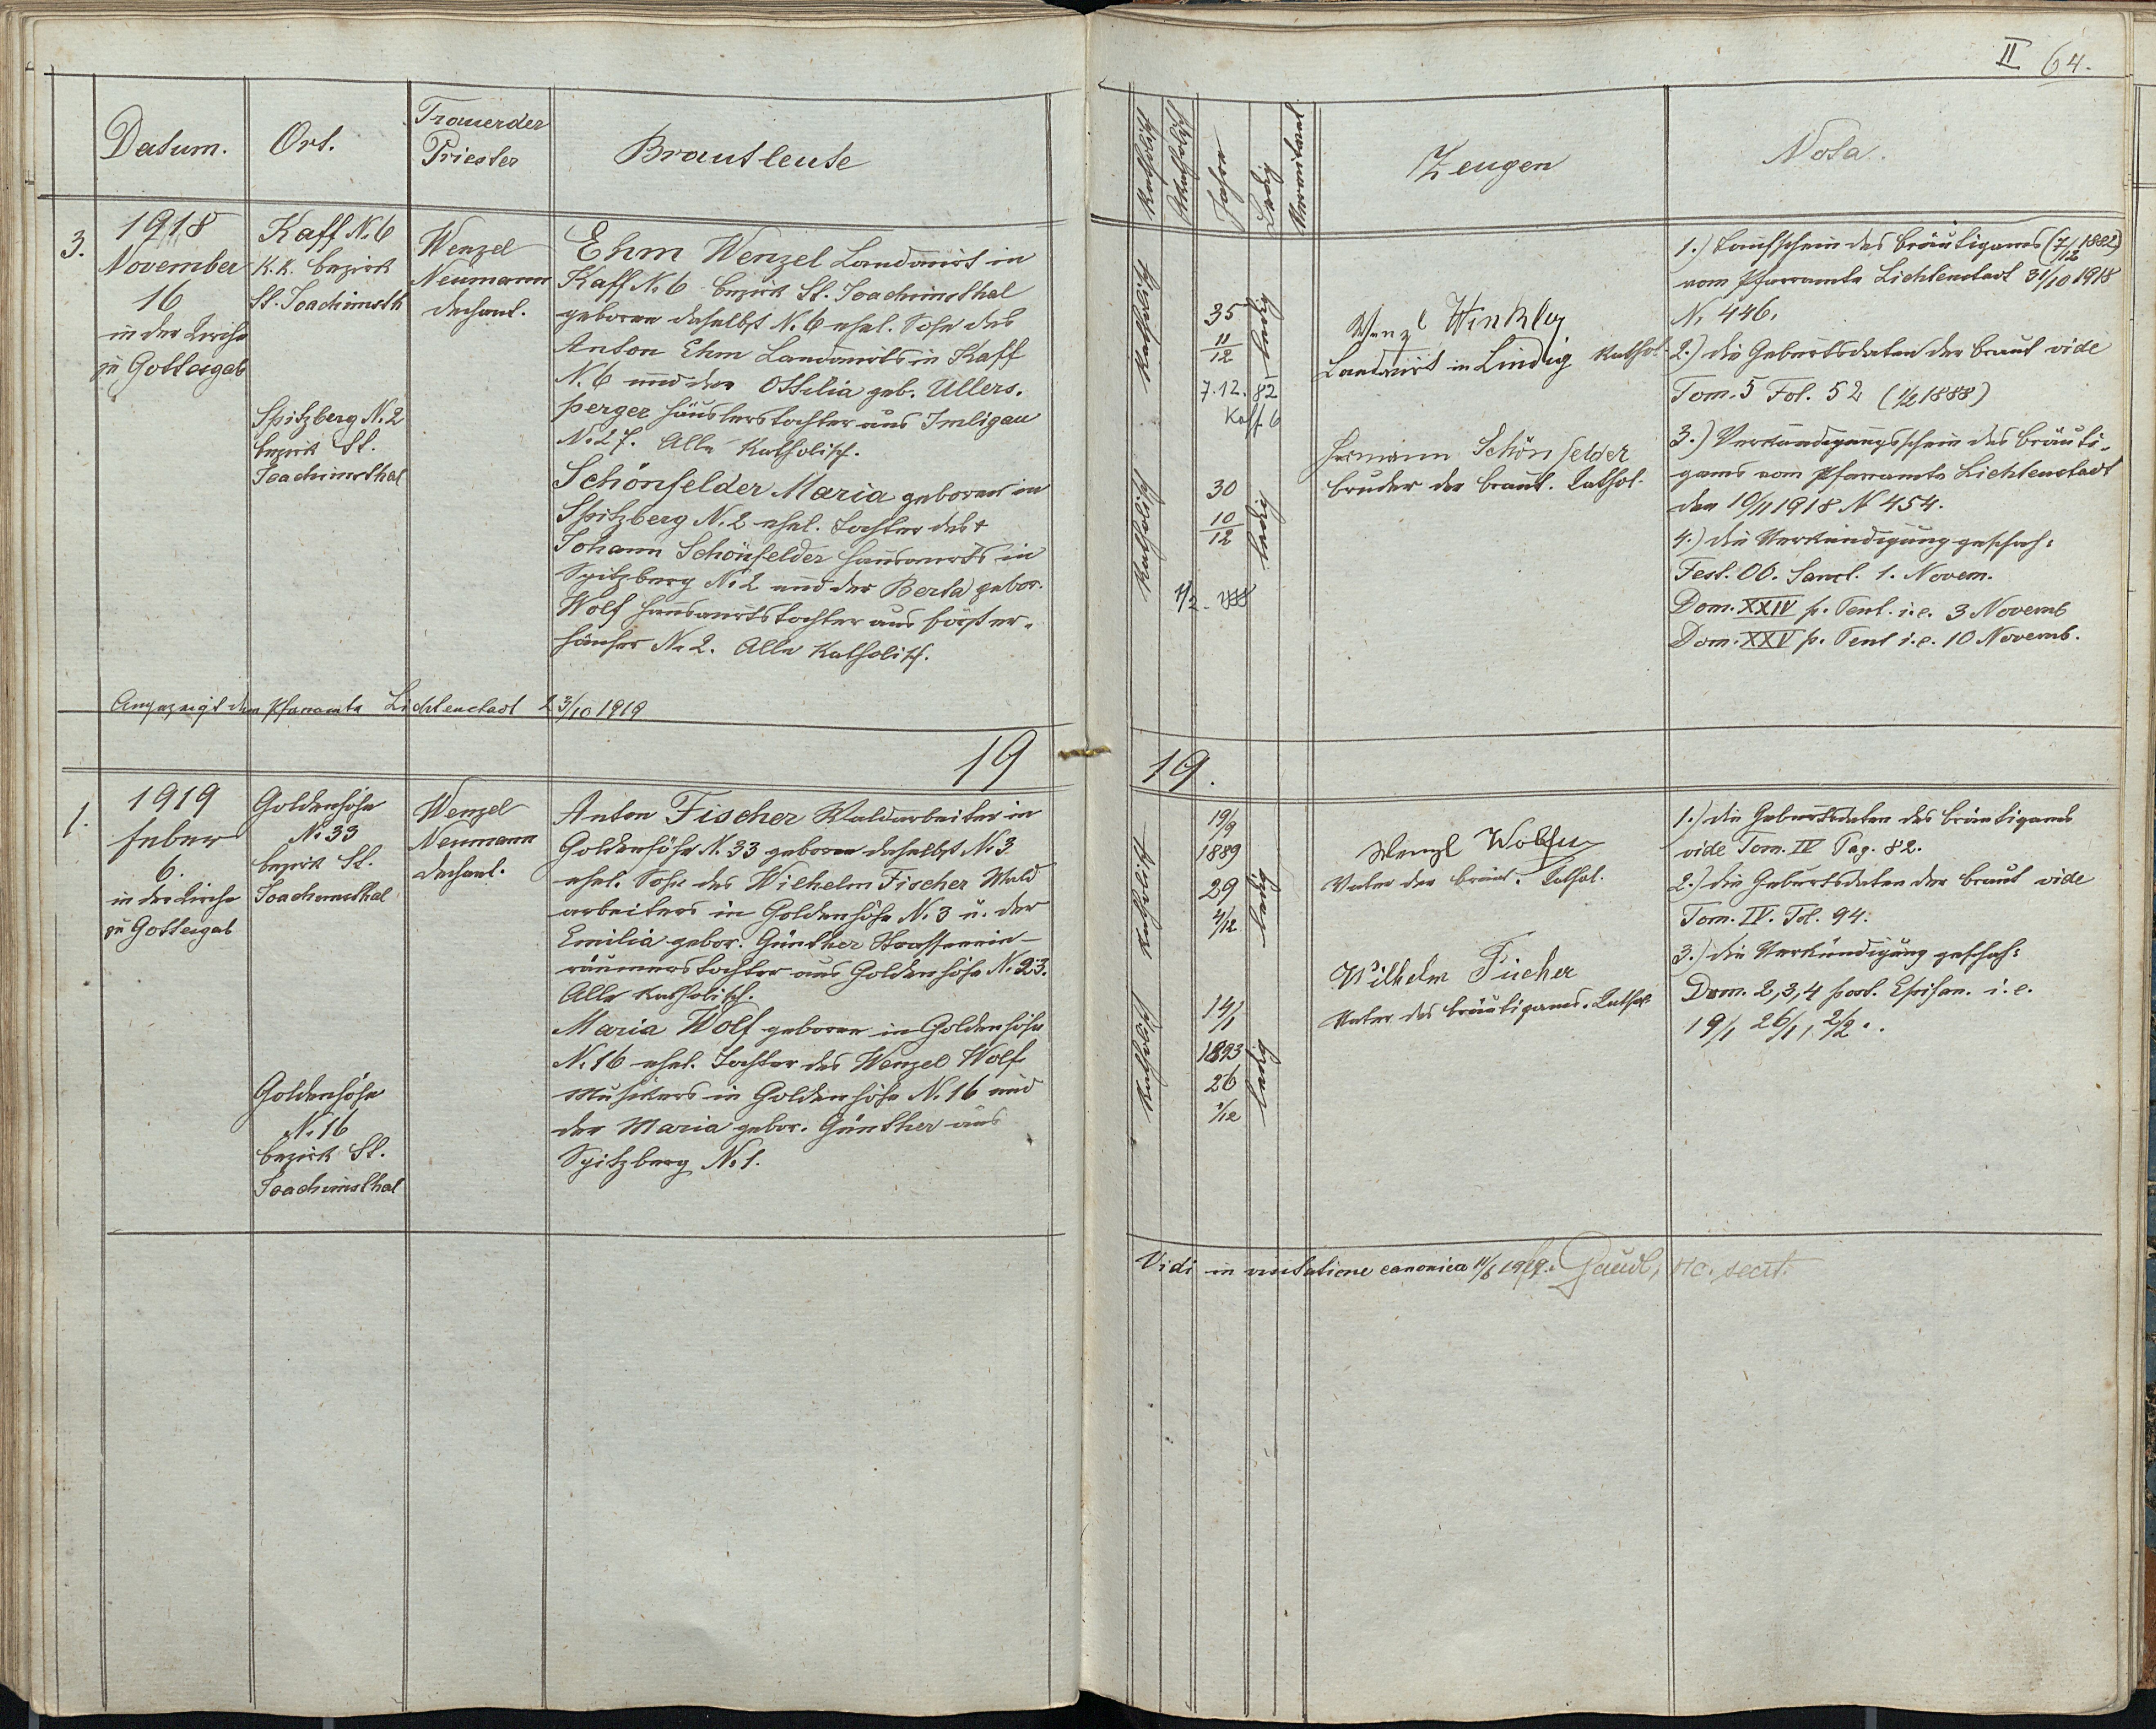 II 64.
Datum.
Ort.
Trauender
Priester
Brautleute
Katholisch
Akatholisch
Jahre
Ledig
Verwitwet
Zeugen
Nota.
3.
1918
November
16
in der Kirche
zu Gottesgab
Kaff N. 6
K.K. Bezirk
St. Joachimsth
Spitzberg N. 2
Bezirk St.
Joachimsthal
Wenzel
Neumann
Dechant.
Ehm Wenzel Landwirt in
Kaff N. 6 Bezirk St. Joachimsthal
geboren daselbst N. 6 ehel. Sohn des
Anton Ehm Landwirts in Kaff
N. 6 und der Ottilia geb. Ullers-
perger Häuslerstochter aus Imligau
N. 27. Alle Katholisch.
Schönfelder Maria geboren in
Spitzberg N. 2 ehel. Tochter des †
Johann Schönfelder Hauswirts in
Spitzberg N. 2 und der Berta gebor.
Wolf Hauswirtstochter aus Förster-
häuser N. 2. Alle Katholisch.
Angezeigt dem Pfarramte Lichtenstadt 23/10 1919
Katholisch
35
11/12
7.12.82
Kaff 6
ledig
Katholisch
30
10/12
ledig
Wenzl Winkler
Landwirt in Lindig Kathol.
Hermann Schönfelder
Bruder der Braut. Kathol.
1.) Taufschein des Bräutigams (7/12 1882)
vom Pfarramte Lichtenstadt 31/10 1918
N. 446.
2.) die Geburtsdaten der Braut vide
Tom. 5 Fol. 52 (1/2 1888)
3.) Verkündigungsschein des Bräuti-
gams vom Pfarramte Lichtenstadt
den 10/11 1918 N 454.
4.) die Verkündigung geschah:
Fest. OO. Sanct. 1. Novem.
Dom. XXIV p. Pent. i.e. 3 Novemb
Dom. XXV p. Pent i.e. 10 Novemb.
19
19.
1.
1919
Feber
6.
in der Kirche
zu Gottesgab
Goldenhöhe
N. 33
Bezirk St.
Joachimsthal
Goldenhöhe
N. 16
Bezirk St.
Joachimsthal
Wenzel
Neumann
Dechant.
Anton Fischer Waldarbeiter in
Goldenhöhe N. 33 geboren daselbst N. 3
ehel. Sohn des Wilhelm Fischer Wald
arbeiters in Goldenhöhe N. 3 u. der
Emilia gebor. Günther Strassenein-
räumerstochter aus Goldenhöhe N. 23.
Alle Katholisch.
Maria Wolf geboren in Goldenhöhe
N. 16 ehel. Tochter des Wenzel Wolf
Musikers in Goldenhöhe N. 16 und
der Maria gebor. Günther aus
Spitzberg N. 1.
Katholisch
19/9
1889
29
4/12
ledig
Katholisch
14/1
1893
26
1/12
ledig
Wenzl
Vater der Braut. Kathol.
Wilhelm Fischer
Vater des Bräutigams. Kathol.
1.) die Geburtsdaten des Bräutigams
vide Tom. IV Pag. 82.
2.) die Geburtsdaten der Braut vide
Tom. IV. Fol. 94.
3.) die Verkündigung geschah:
Dom. 2, 3, 4 post. Epifan. i. e.
19/1 26/1, 2/2..
Vidi in visitatione canonica 11/6 1919. secret.